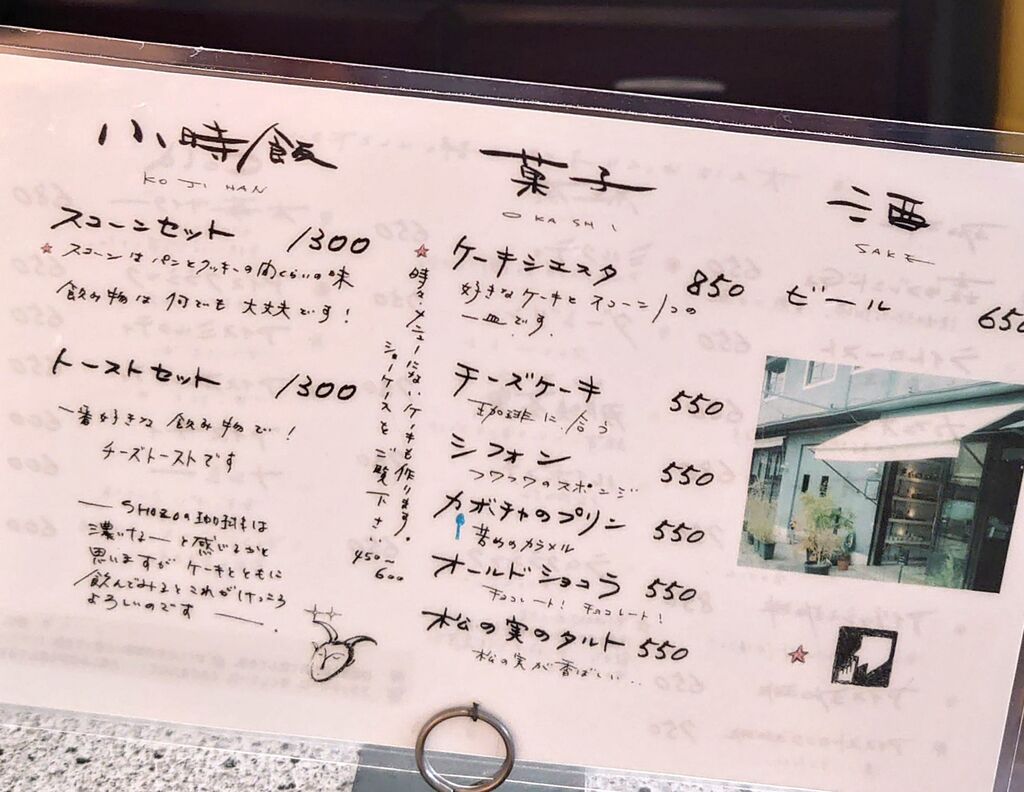 小時飯
KOJIHAN
スコーンセット 1300
スコーンはパンとクッキーの間くらいの味
飲み物は何でも大丈夫です!
トーストセット 1300
一番好きな飲み物で!
チーズトーストです
SHOZOの珈琲は
濃いなーと感じるかと
思いますがケーキとともに
飲んでみるとこれがけっこう
よろしいのです
菓子
OKASHI
時々メニューにないケーキも作ります。
ショーケースをご覧下さい
450〜
600
ケーキシエスタ 850
好きなケーキとスコーン1つの
一皿です.
チーズケーキ 550
珈琲に合う
シフォン 550
フワフワのスポンジ
カボチャのプリン 550
苦めのカラメル
オールドショコラ 550
チョコレート! チョコレート!
松の実のタルト 550
松の実が香ばしい...
酒
SAKE
ビール 650